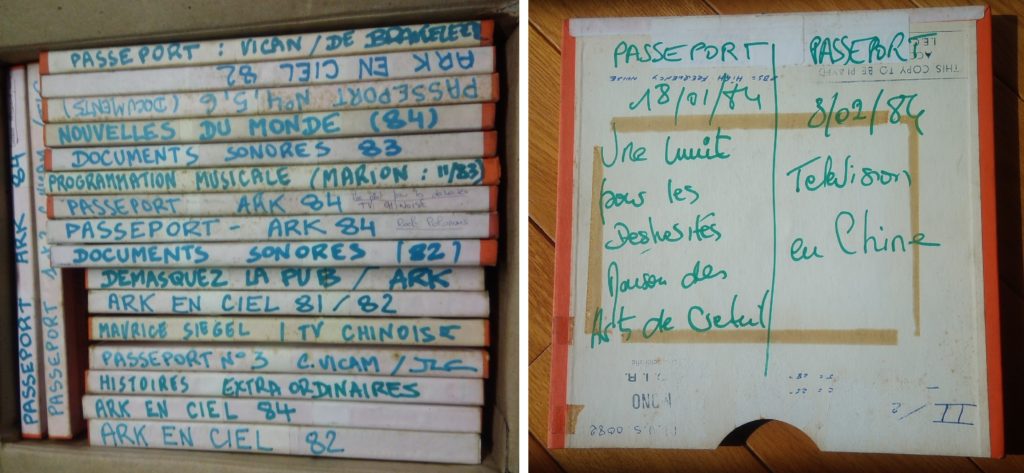 PASSEPORT : VICAN / DE BRAKELEER
ARK EN CIEL 82
PASSEPORT N°4,5,6 (DOCUMENTS)
NOUVELLES DU MONDE (84)
DOCUMENTS SONORES 83
PROGRAMMATION MUSICALE (MARION : 11/83)
PASSEPORT ARK 84
PASSEPORT - ARK 84
DOCUMENTS SONORES (82)
DEMASQUEZ LA PUB / ARK
ARK EN CIEL 81/82
MAURICE SIEGEL / TV CHINOISE
PASSEPORT N°3 C. VICAM /
HISTOIRES EXTRAORDINAIRES
ARK EN CIEL 84
ARK EN CIEL 82
PASSEPORT ARK 84
PASSEPORT
PASSEPORT
HIGH FREQUENCY NOISE
18/01/84
Une
pour les
Desherités
Maison des
Arts de Creteil
PASSEPORT
THIS COPY TO BE PLAYED
3/02/84
Television
en Chine
MONO
II